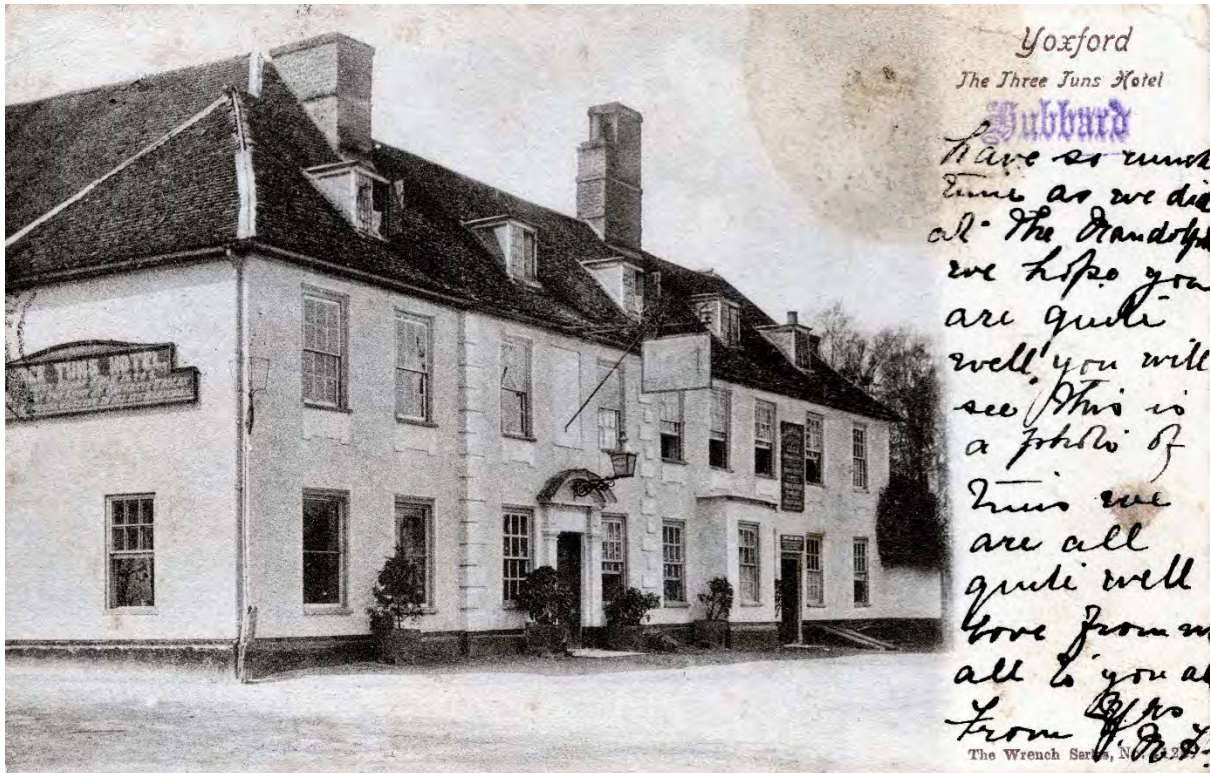 Yoxford
The Three Tuns Hotel
Hubbard
have so much
time as we did
at The Randolph
we hope you
are quite
well you will
see this is
a photo of
Tuns we
are all
quite well
love from
all to you all
From Yrs
The Wrench Series, No.
TUNS HOTEL